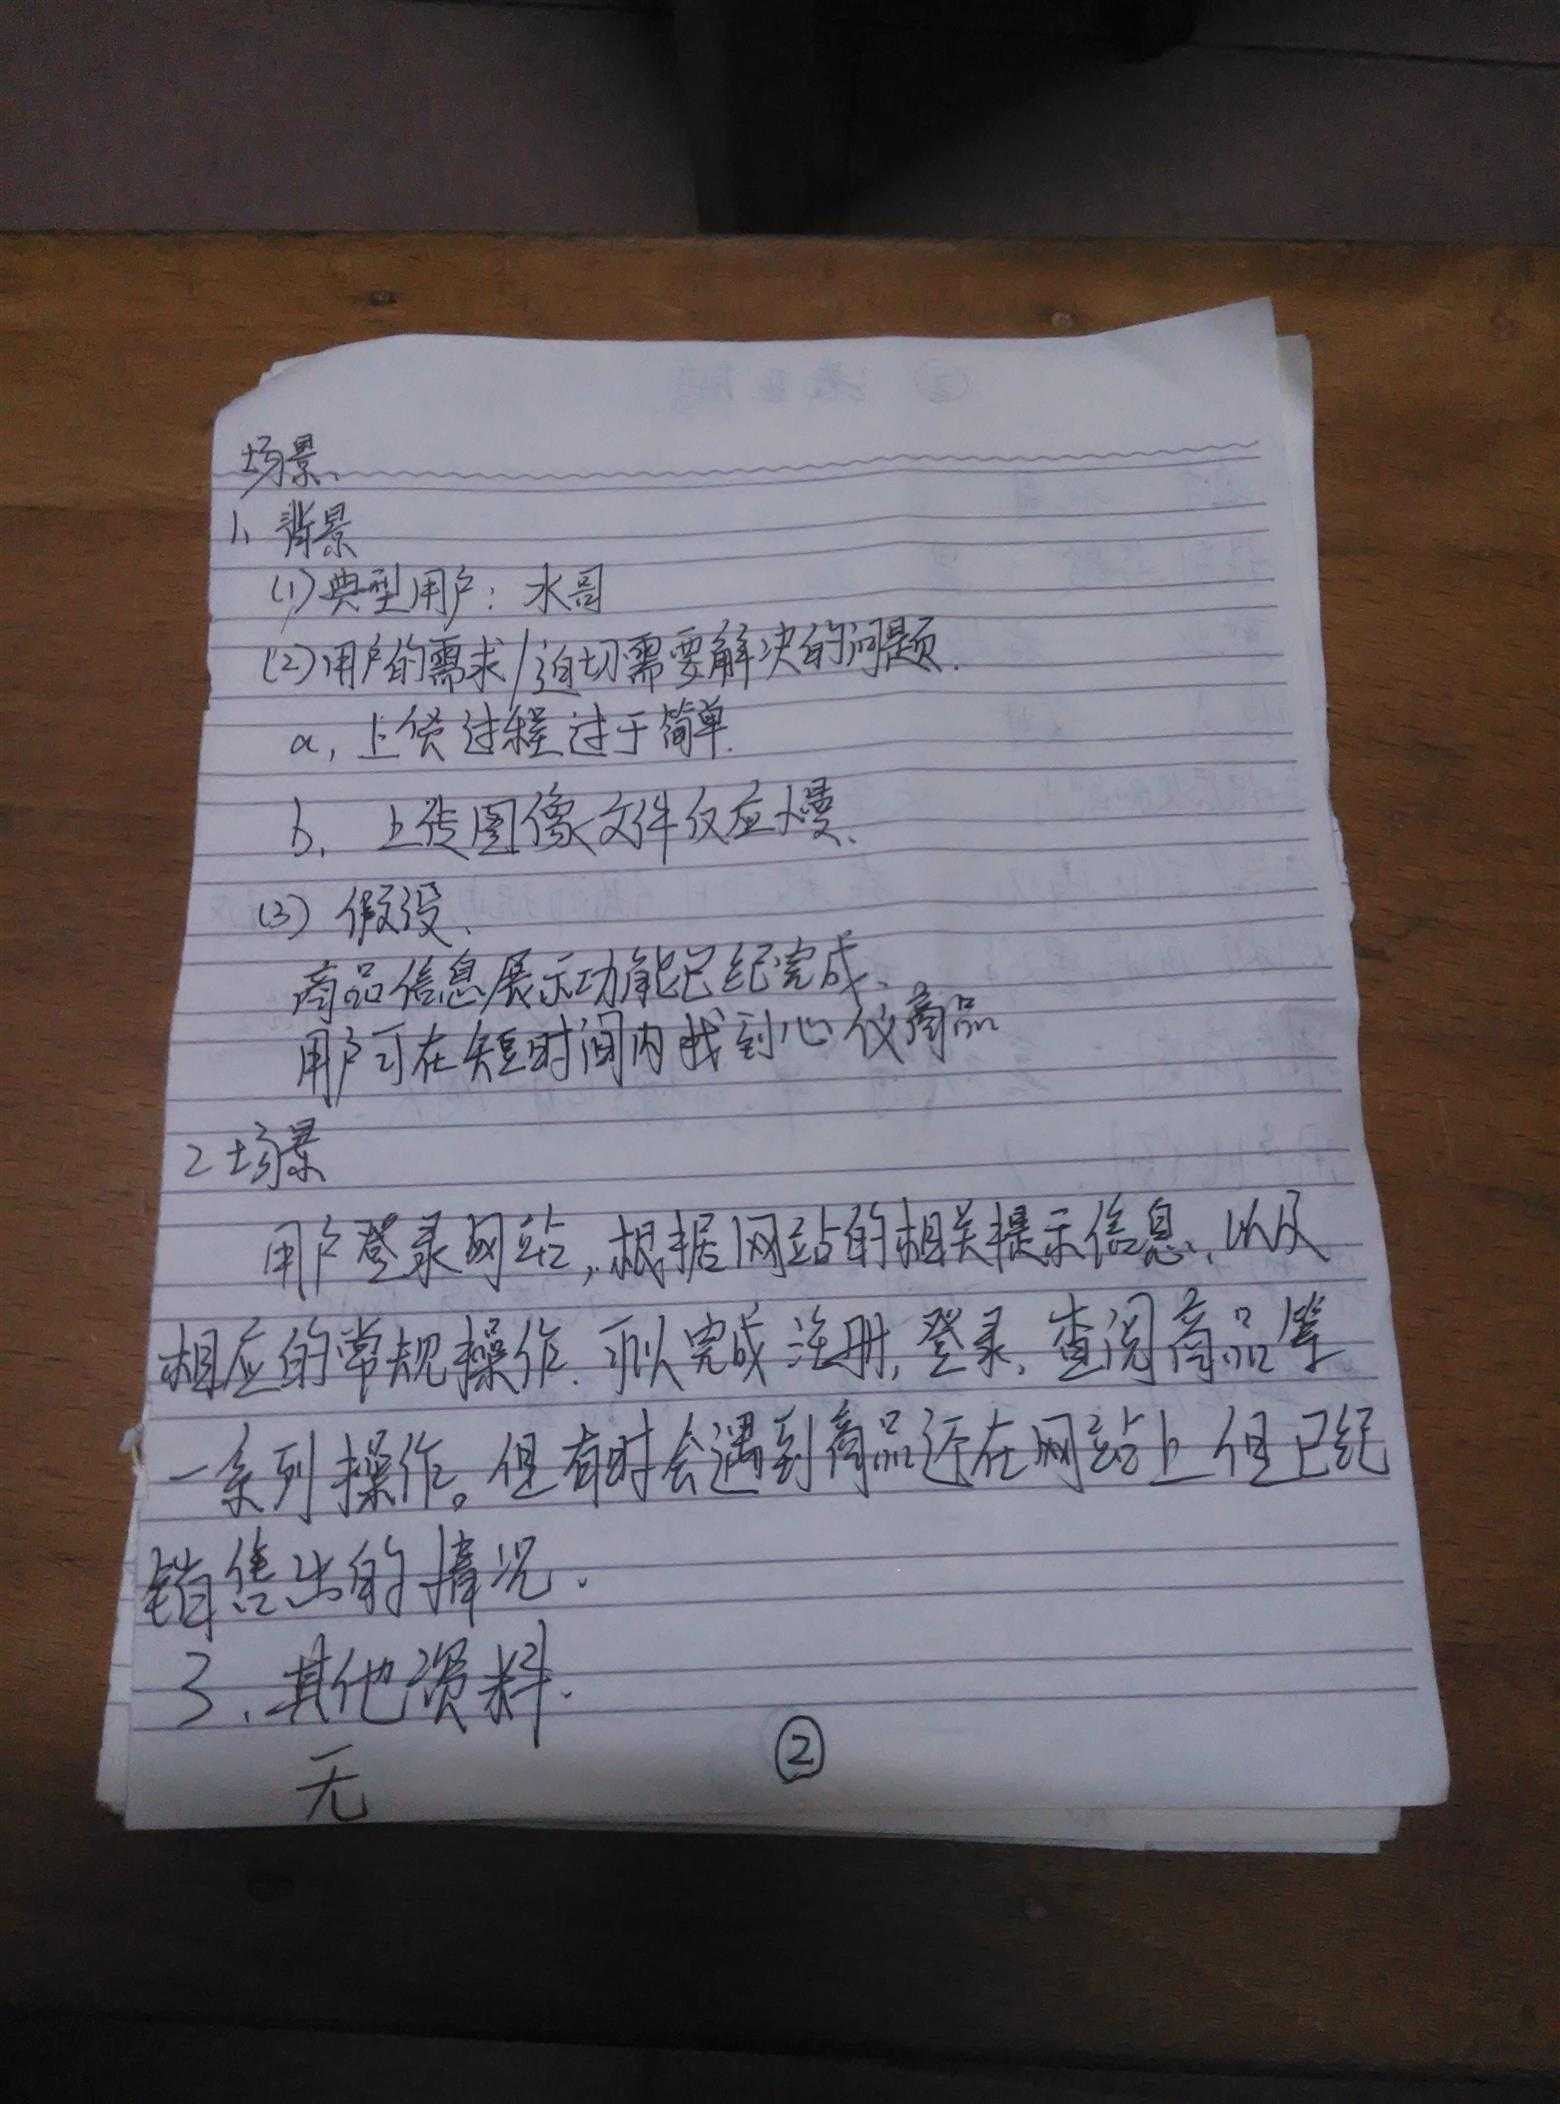 场景、
1、背景
(1)典型用户：水哥
(2)用户的需求/迫切需要解决的问题.
a, 上货过程过于简单.
b, 上传图像文件反应慢、
(3) 假设、
商品信息展示功能已经完成、
用户可在短时间内找到心仪商品
2 场景
用户登录网站,根据网站的相关提示信息、以及
相应的常规操作.可以完成注册,登录,查阅商品等
一系列操作。但有时会遇到商品还在网站上但已经
销售出的情况.
3、其他资料.
无
②